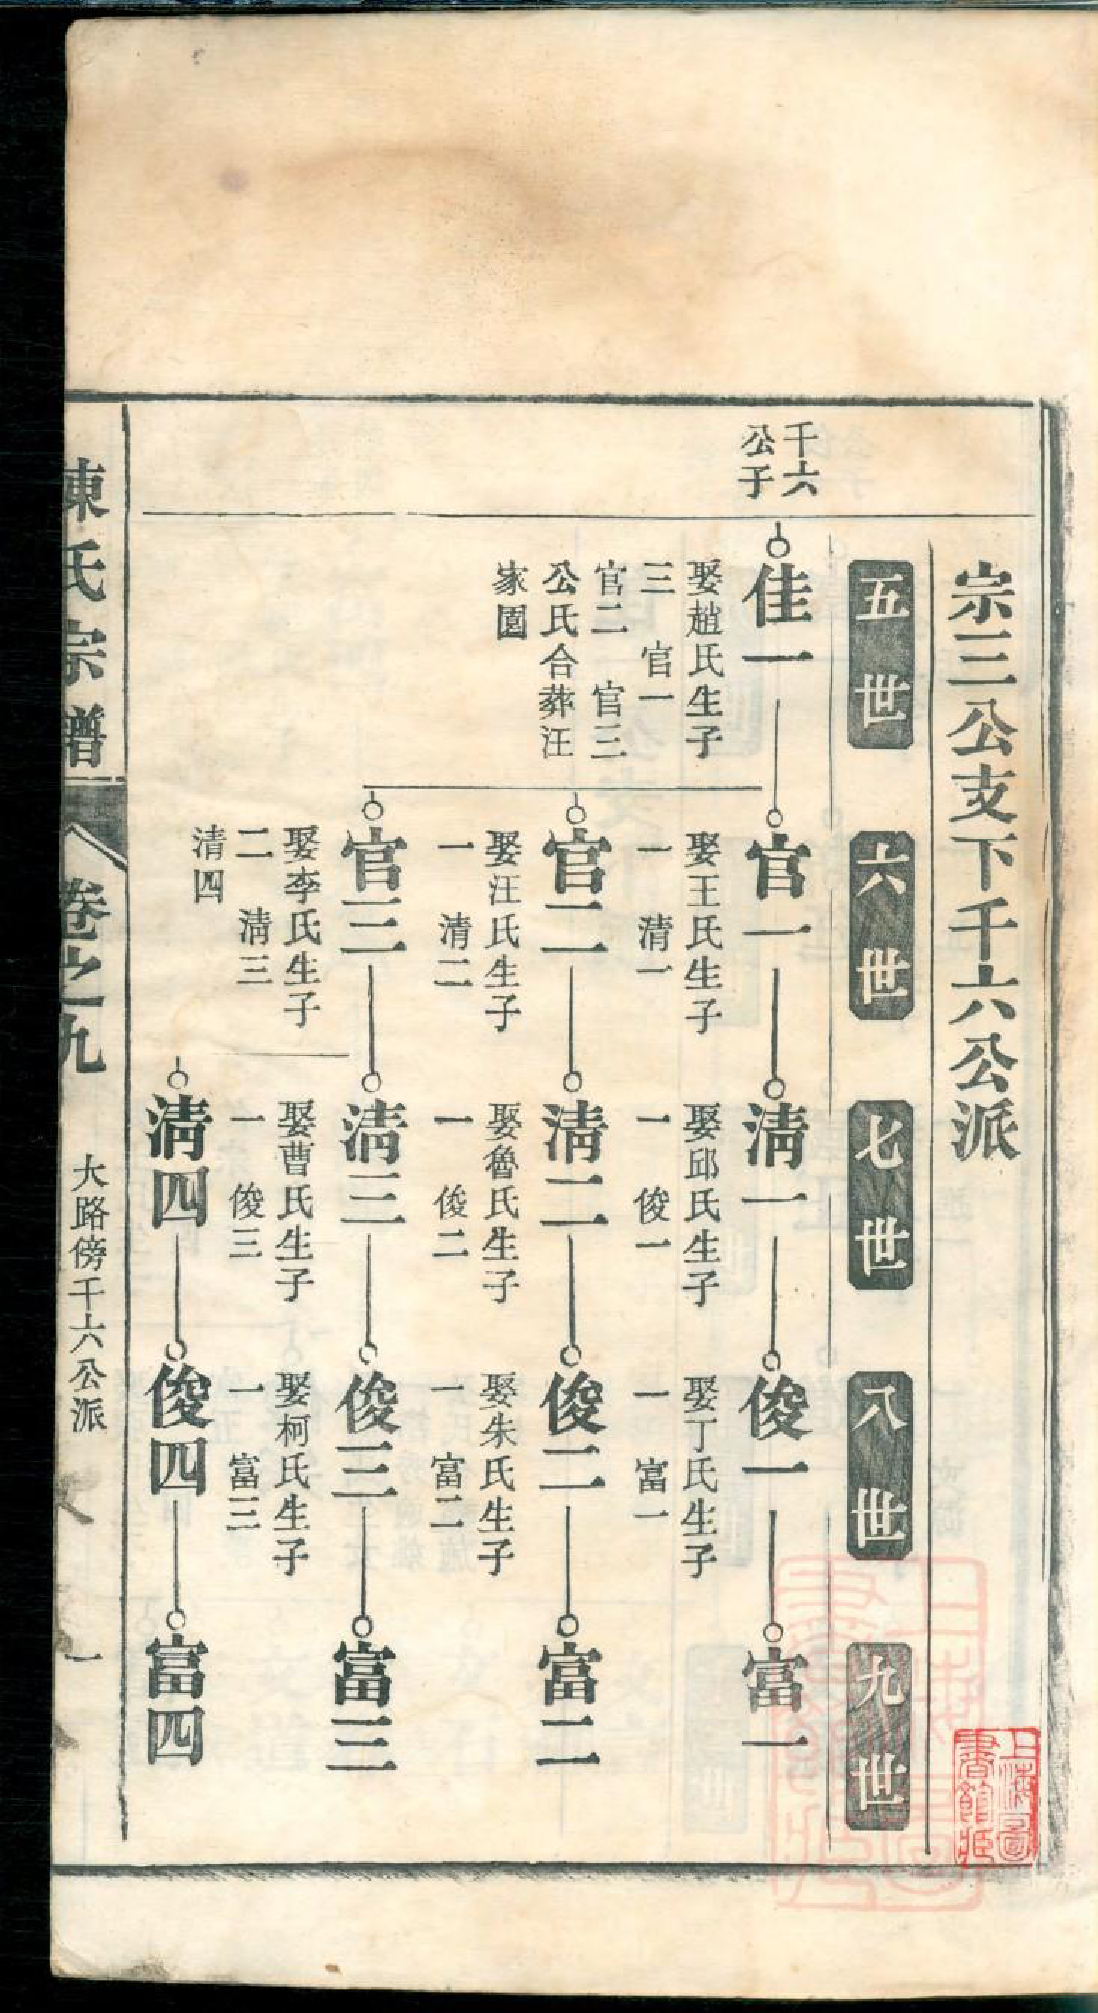 宗三公支下千六公派
五世
六世
七世
八世
九世
千六
公子
佳一
娶趙氏生子
三　官一
官二　官三
公氏合葬汪
家園
官一
娶王氏生子
一　清一
清一
娶邱氏生子
一　俊一
俊一
娶丁氏生子
一　富一
富一
官二
娶汪氏生子
一　清二
清二
娶魯氏生子
一　俊二
俊二
娶朱氏生子
一　富二
富二
官三
娶李氏生子
二　清三
清四
清三
娶曹氏生子
一　俊三
俊三
娶柯氏生子
一　富三
富三
清四
俊四
富四
陳氏宗譜
卷之九
大路傍千六公派
一
上海圖
書館藏